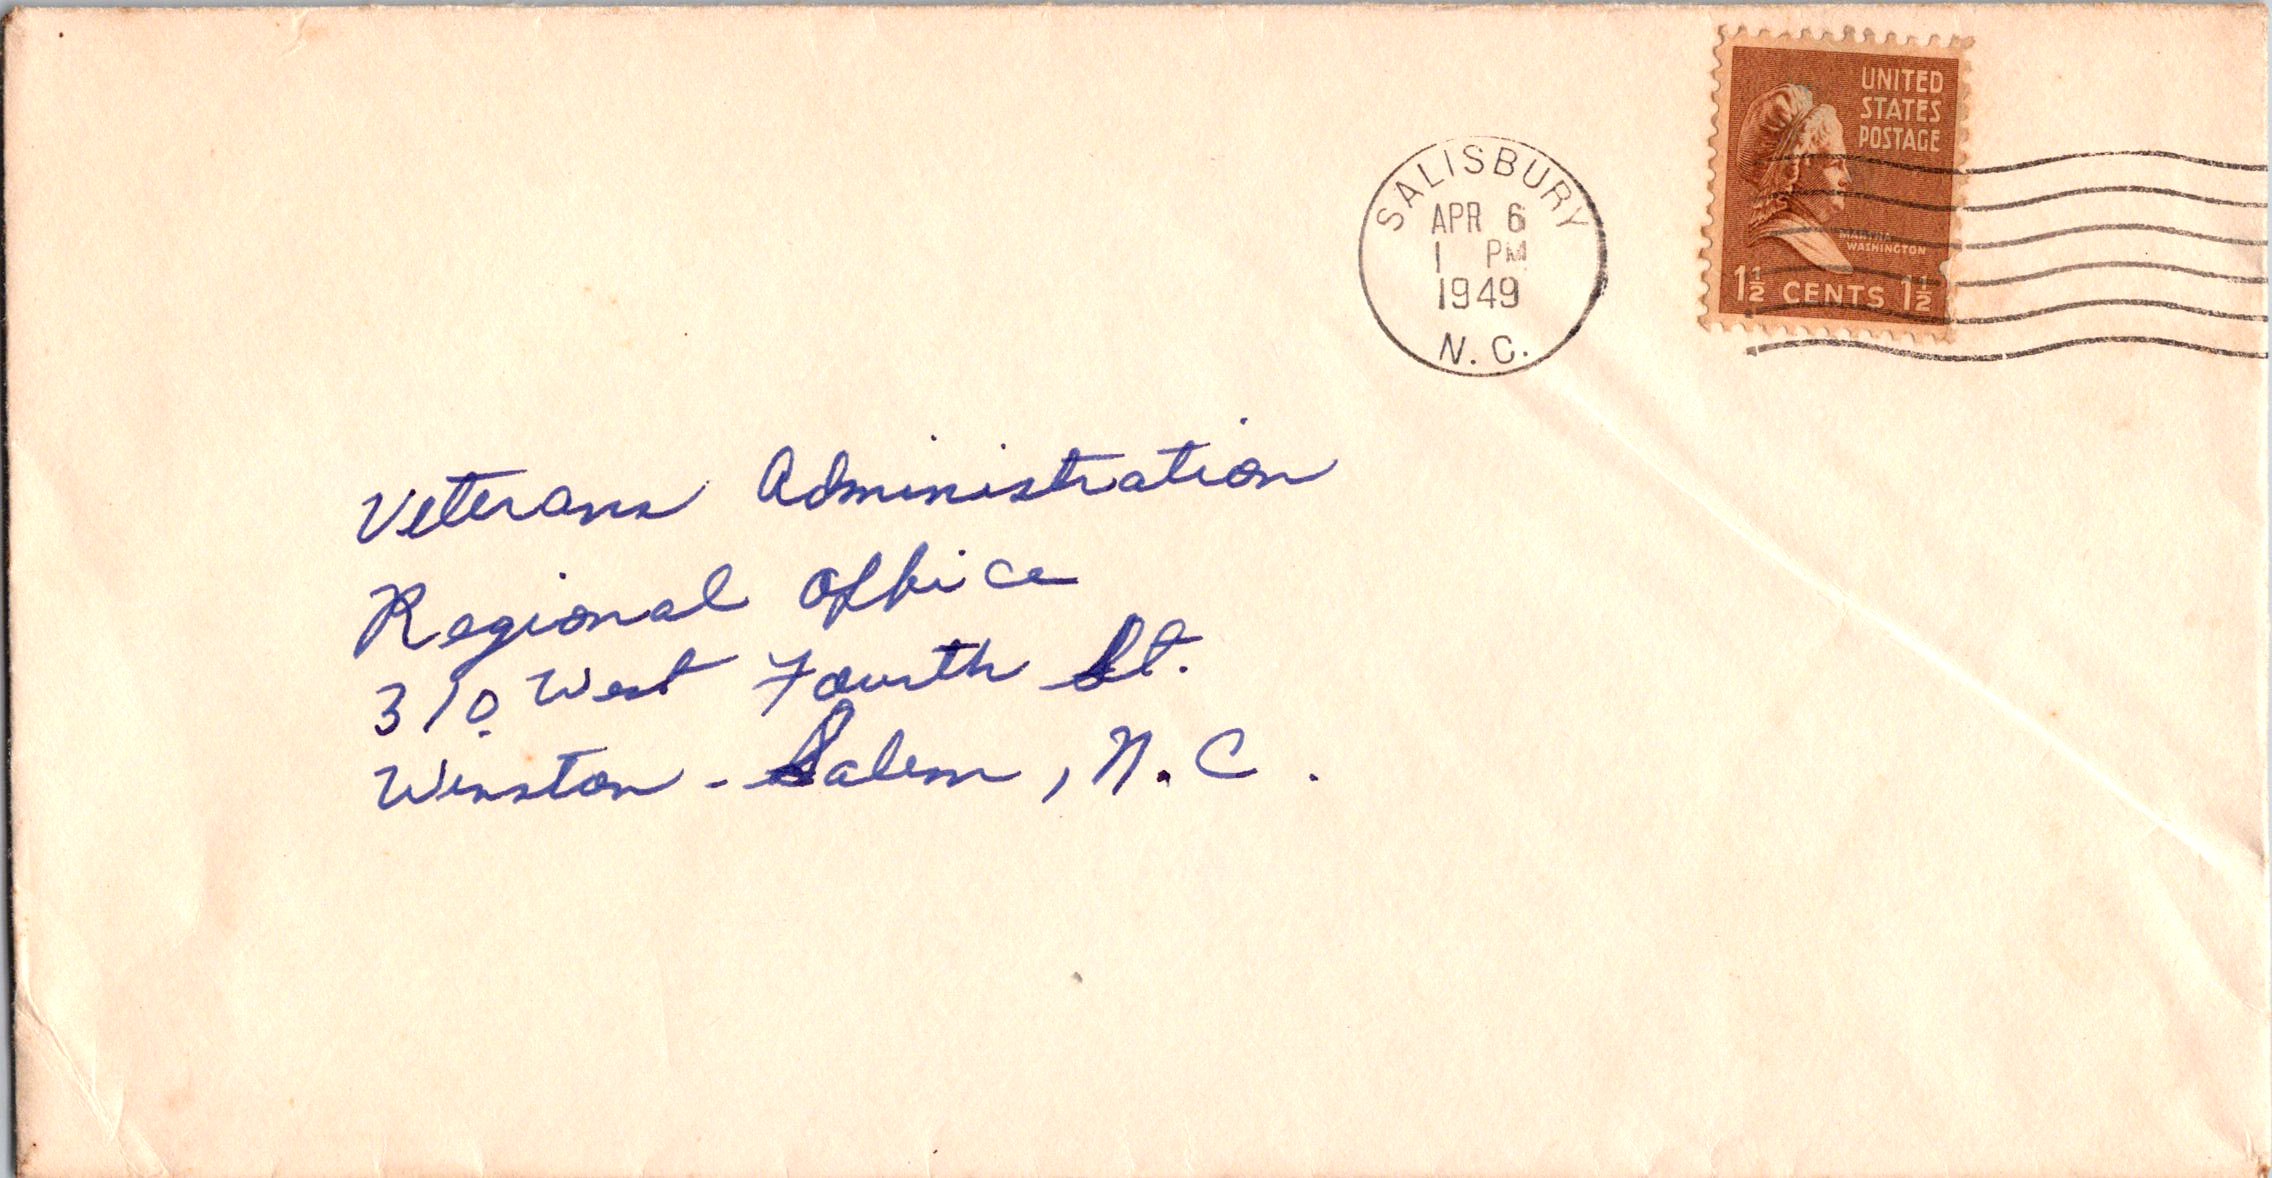 UNITED
STATES
POSTAGE
MARTHA
WASHINGTON
1½ CENTS 1½
SALISBURY
APR 6
1 PM
1949
N. C.
Veterans Administration
Regional Office
310 West Fourth St.
Winston - Salem, N. C.